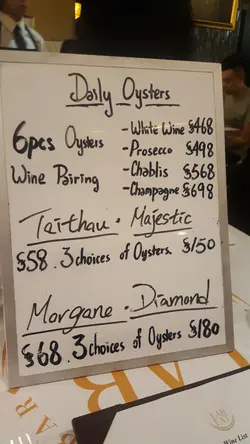 Daily Oysters
6pcs Oysters
Wine Pairing
- White Wine $468
- Prosecco $498
- Chablis $568
- Champagne $698
Tarthau · Majestic
$58. 3 choices of Oysters. $150
Morgane · Diamond
$68. 3 choices of Oysters $180
Wine List